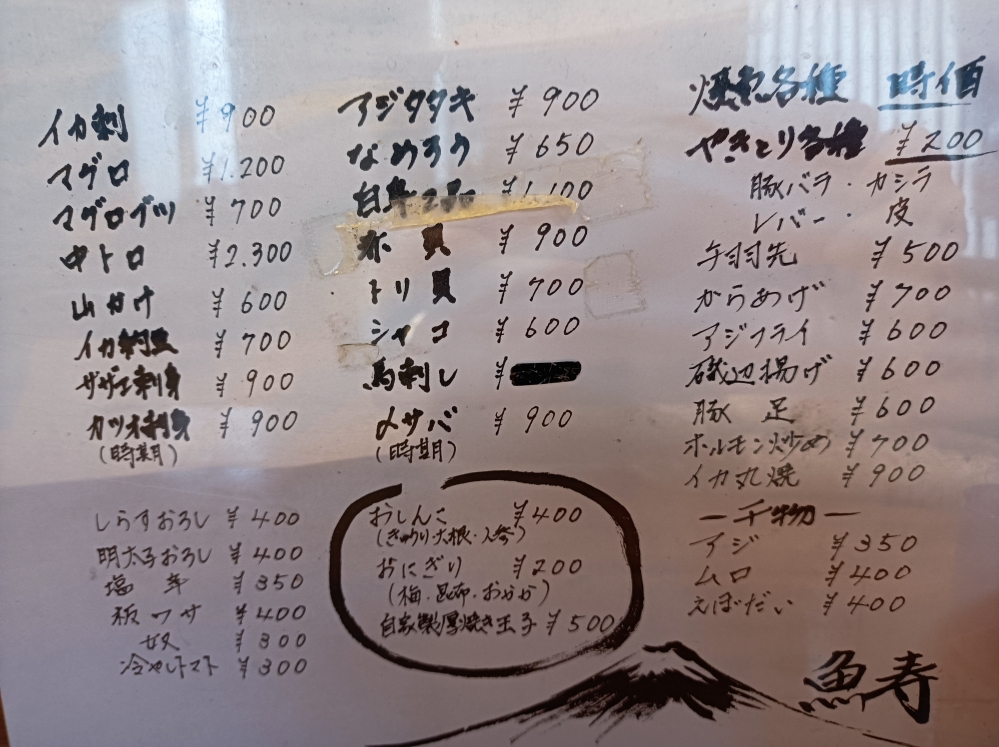 イカ刺 ¥900
マグロ ¥1.200
マグロブツ ¥700
中トロ ¥2.300
山かけ ¥600
イカ納豆 ¥700
サザエ刺身 ¥900
カツオ刺身 ¥900
(時期)
アジタタキ ¥900
なめろう ¥650
¥1,100
赤貝 ¥900
トリ貝 ¥700
シャコ ¥600
馬刺し ¥
〆サバ ¥900
(時期)
焼魚各種 時価
やきとり各種 ¥200
豚バラ・カシラ
レバー・皮
手羽先 ¥500
からあげ ¥700
アジフライ ¥600
磯辺揚げ ¥600
豚足 ¥600
ホルモン炒め ¥700
イカ丸焼 ¥900
ー干物ー
アジ ¥350
ムロ ¥400
えぼだい ¥400
しらすおろし ¥400
明太子おろし ¥400
塩辛 ¥350
板ワサ ¥400
奴 ¥300
冷やしトマト ¥300
おしんこ ¥400
(きゅうり・大根・人参)
おにぎり ¥200
(梅・昆布・おかか)
自家製厚焼き玉子 ¥500
魚寿